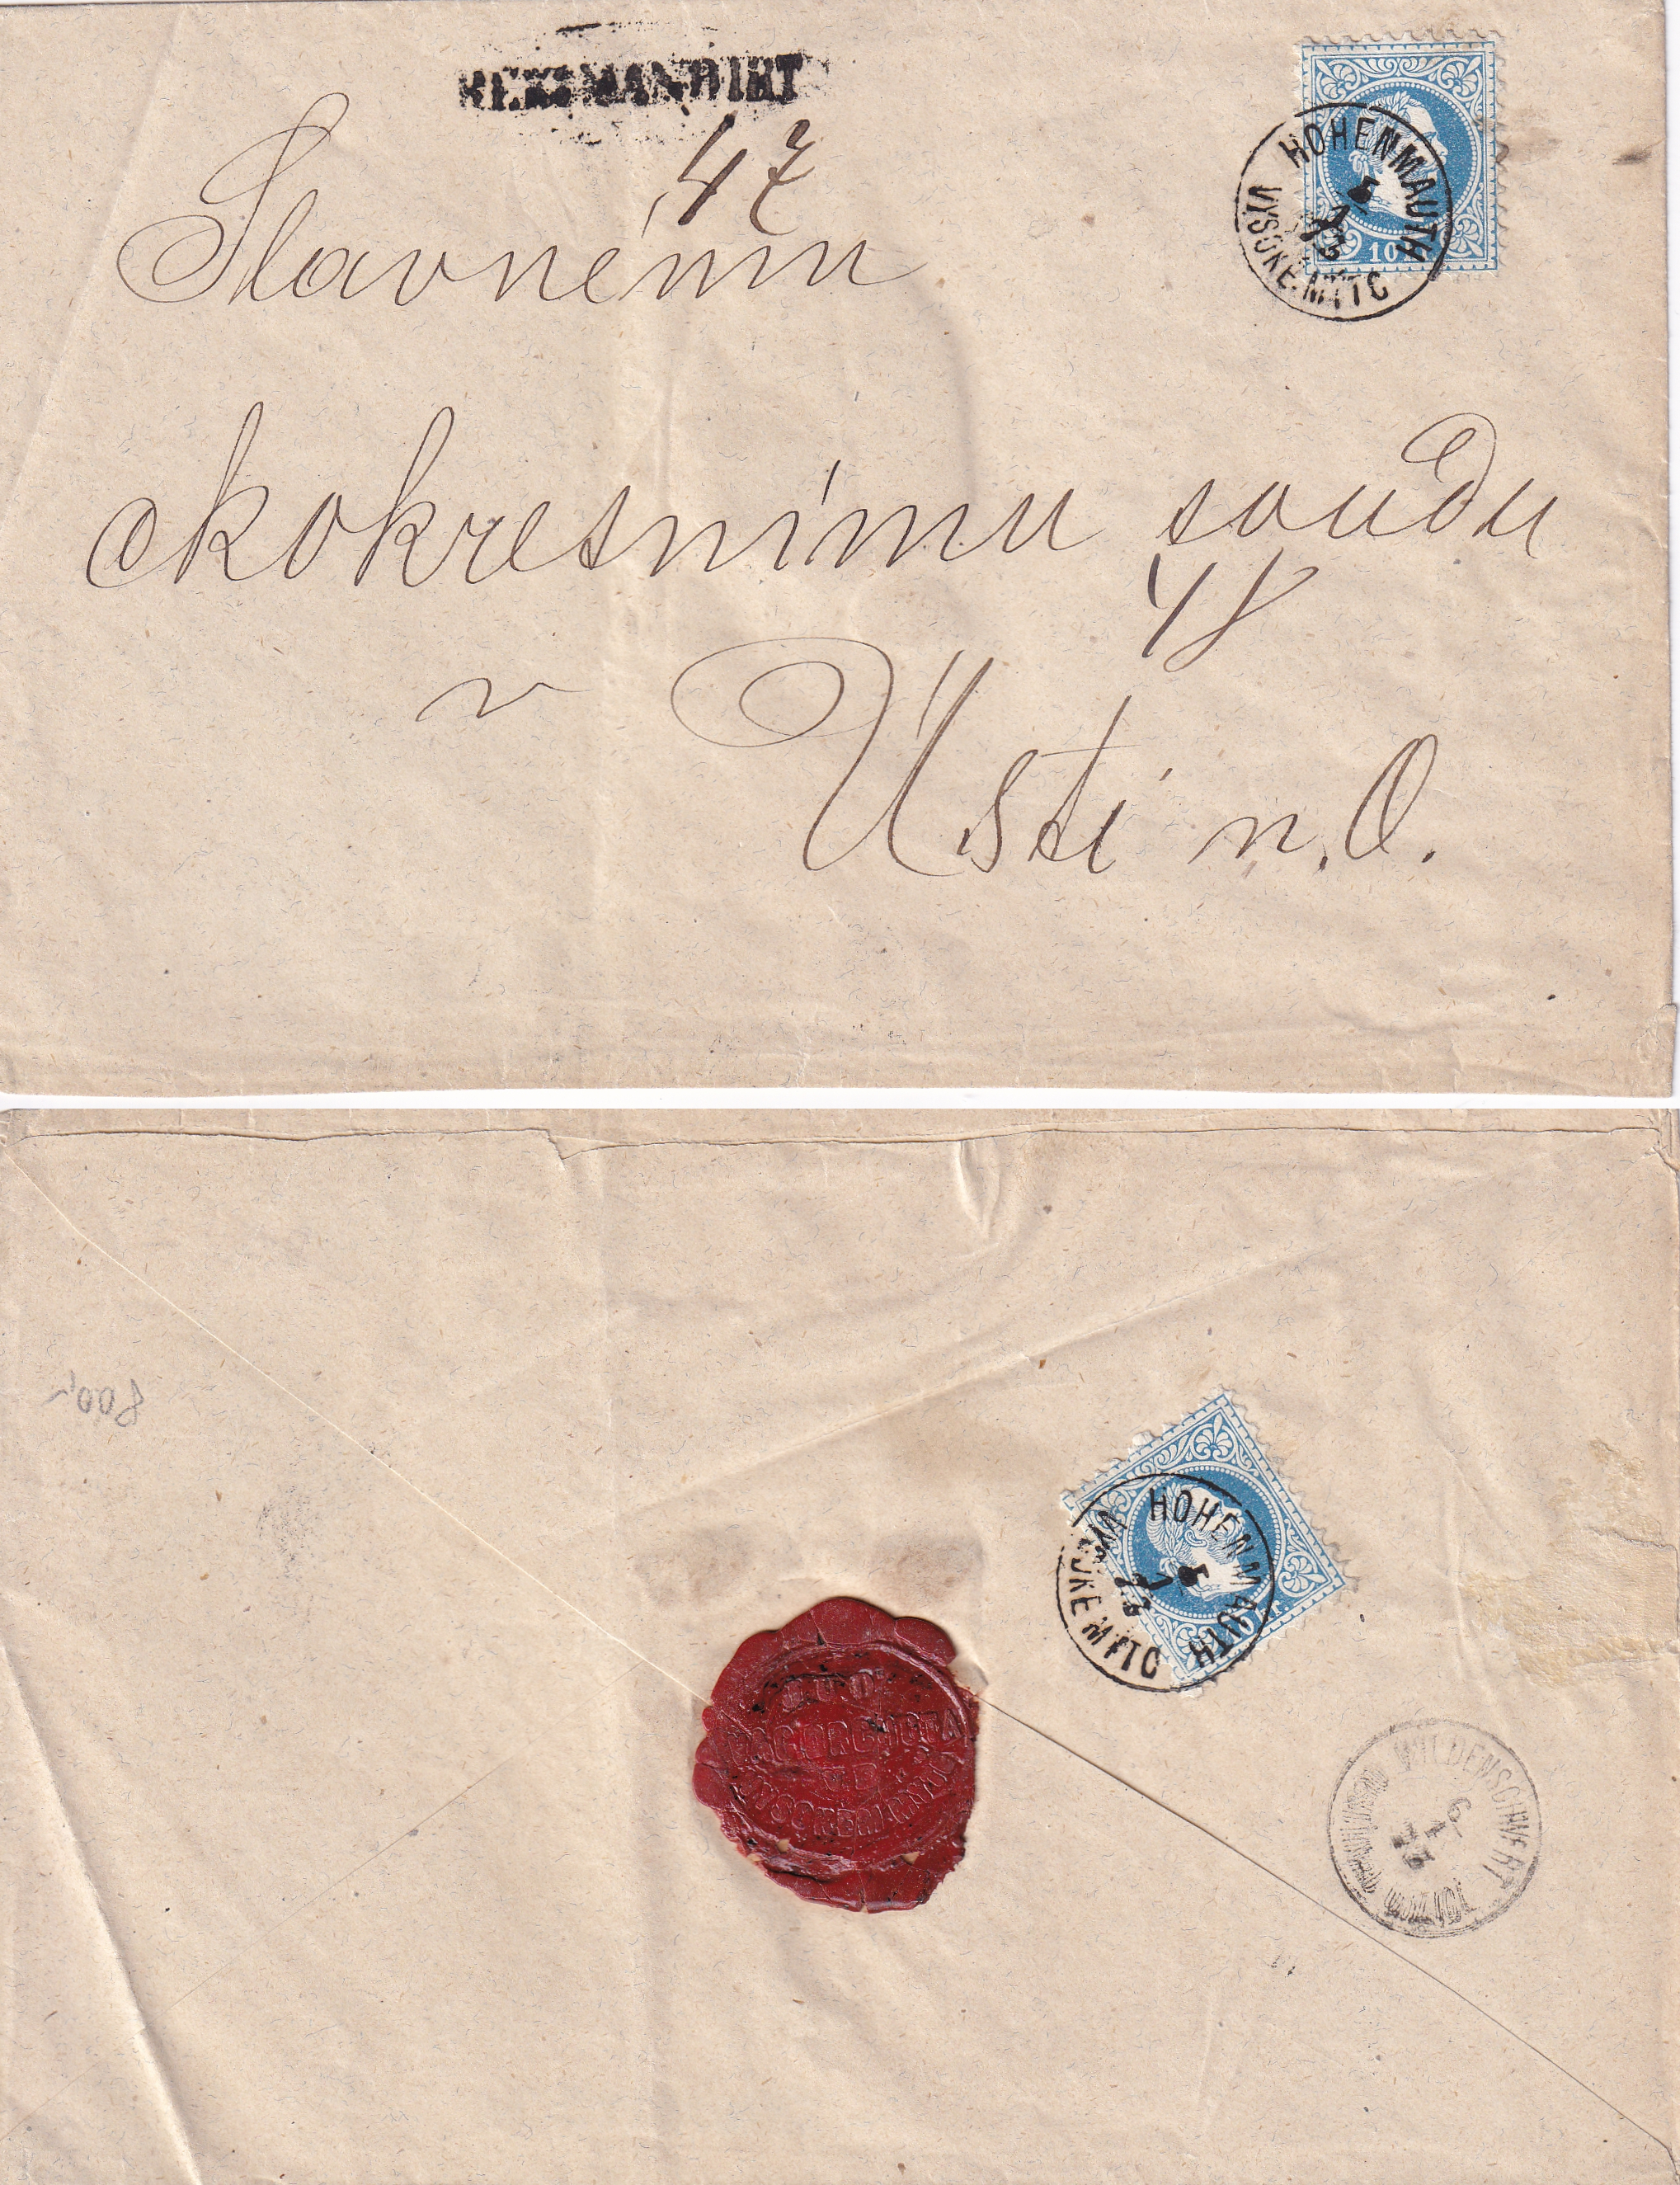 REKOMMANDIRT
47
Slavnému
ckokresnímu soudu
48
v
Ústí n. O.
HOHENMAUTH
VYSOKE MÝTO
5
1
73
10
800,-
HOHENMAUTH
VYSOKE MÝTO
5
1
73
WILDENSCHWERT
6
1
73